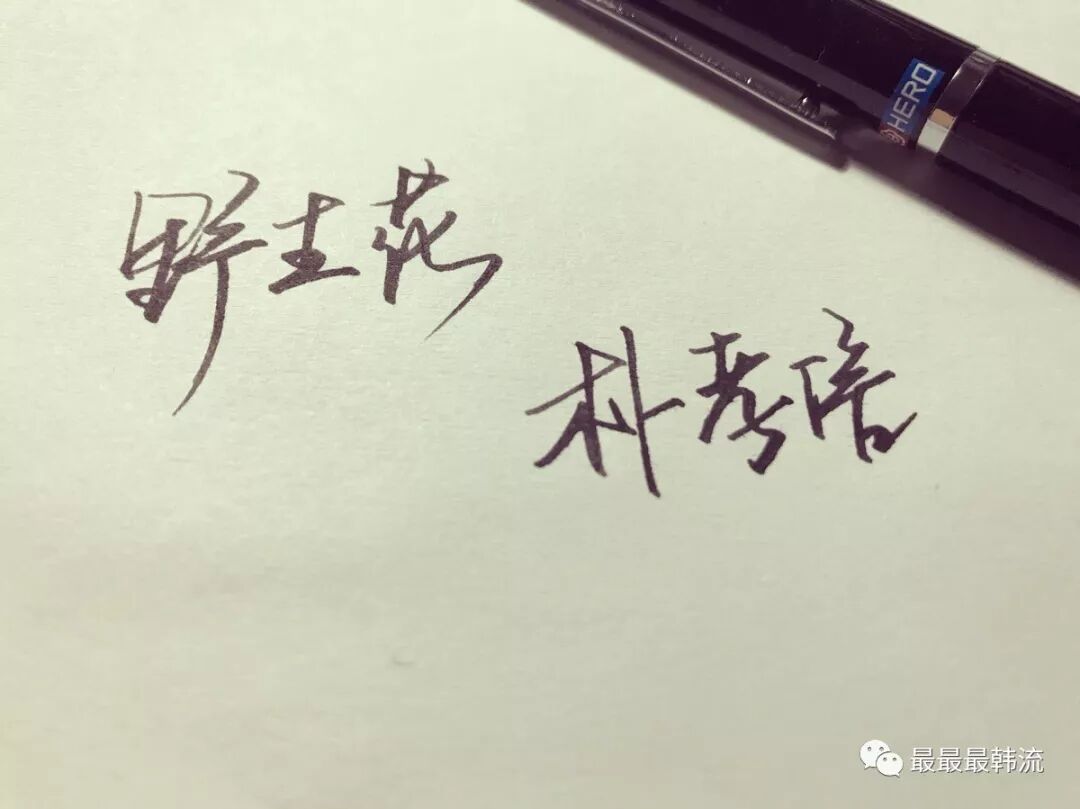 野生花
朴孝信
HERO
最最最韩流